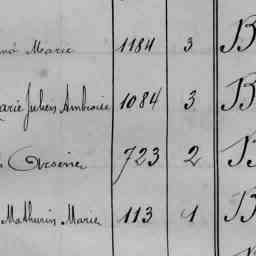 Marie 1184 3 B
Marie Julien Ambroise 1084 3 B
Arsène 723 2 B
Mathurin Marie 113 1 B